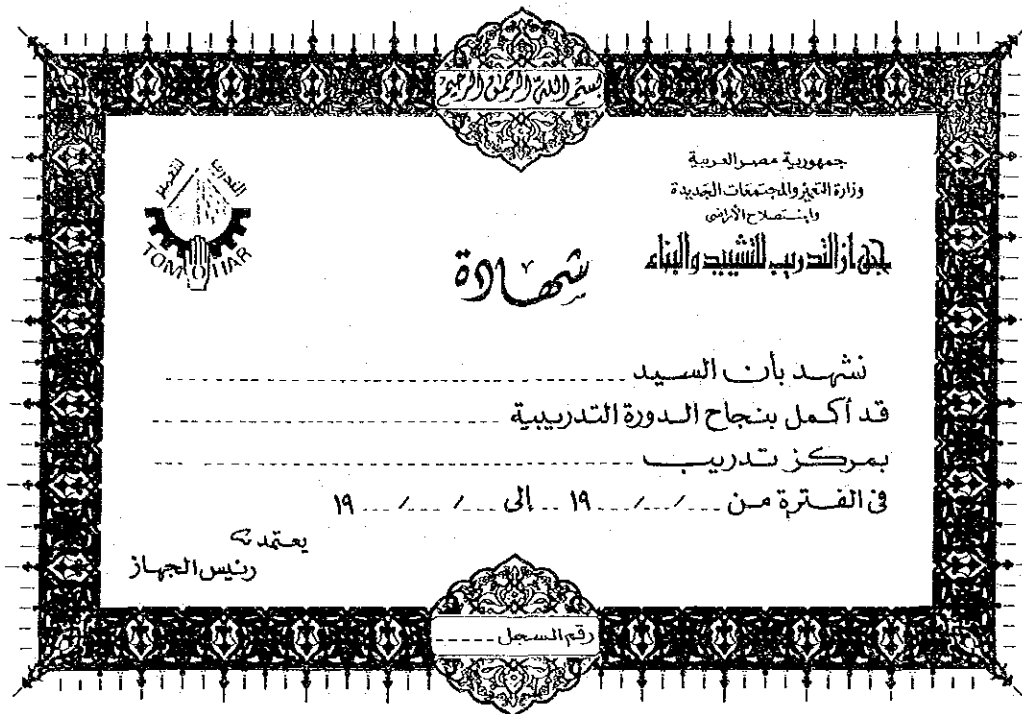 بسم الله الرحمن الرحيم
جمهورية مصر العربية
وزارة التعمير والمجتمعات الجديدة
واستصلاح الأراضى
جهاز التدريب للتشييد والبناء
التدريب للتعمير
TOMOHAR
شهادة
نشهد بأن السيد
قد أكمل بنجاح الدورة التدريبية
بمركز تدريب
فى الفترة من / / ١٩ إلى / / ١٩
يعتمد
رئيس الجهاز
رقم المسجل